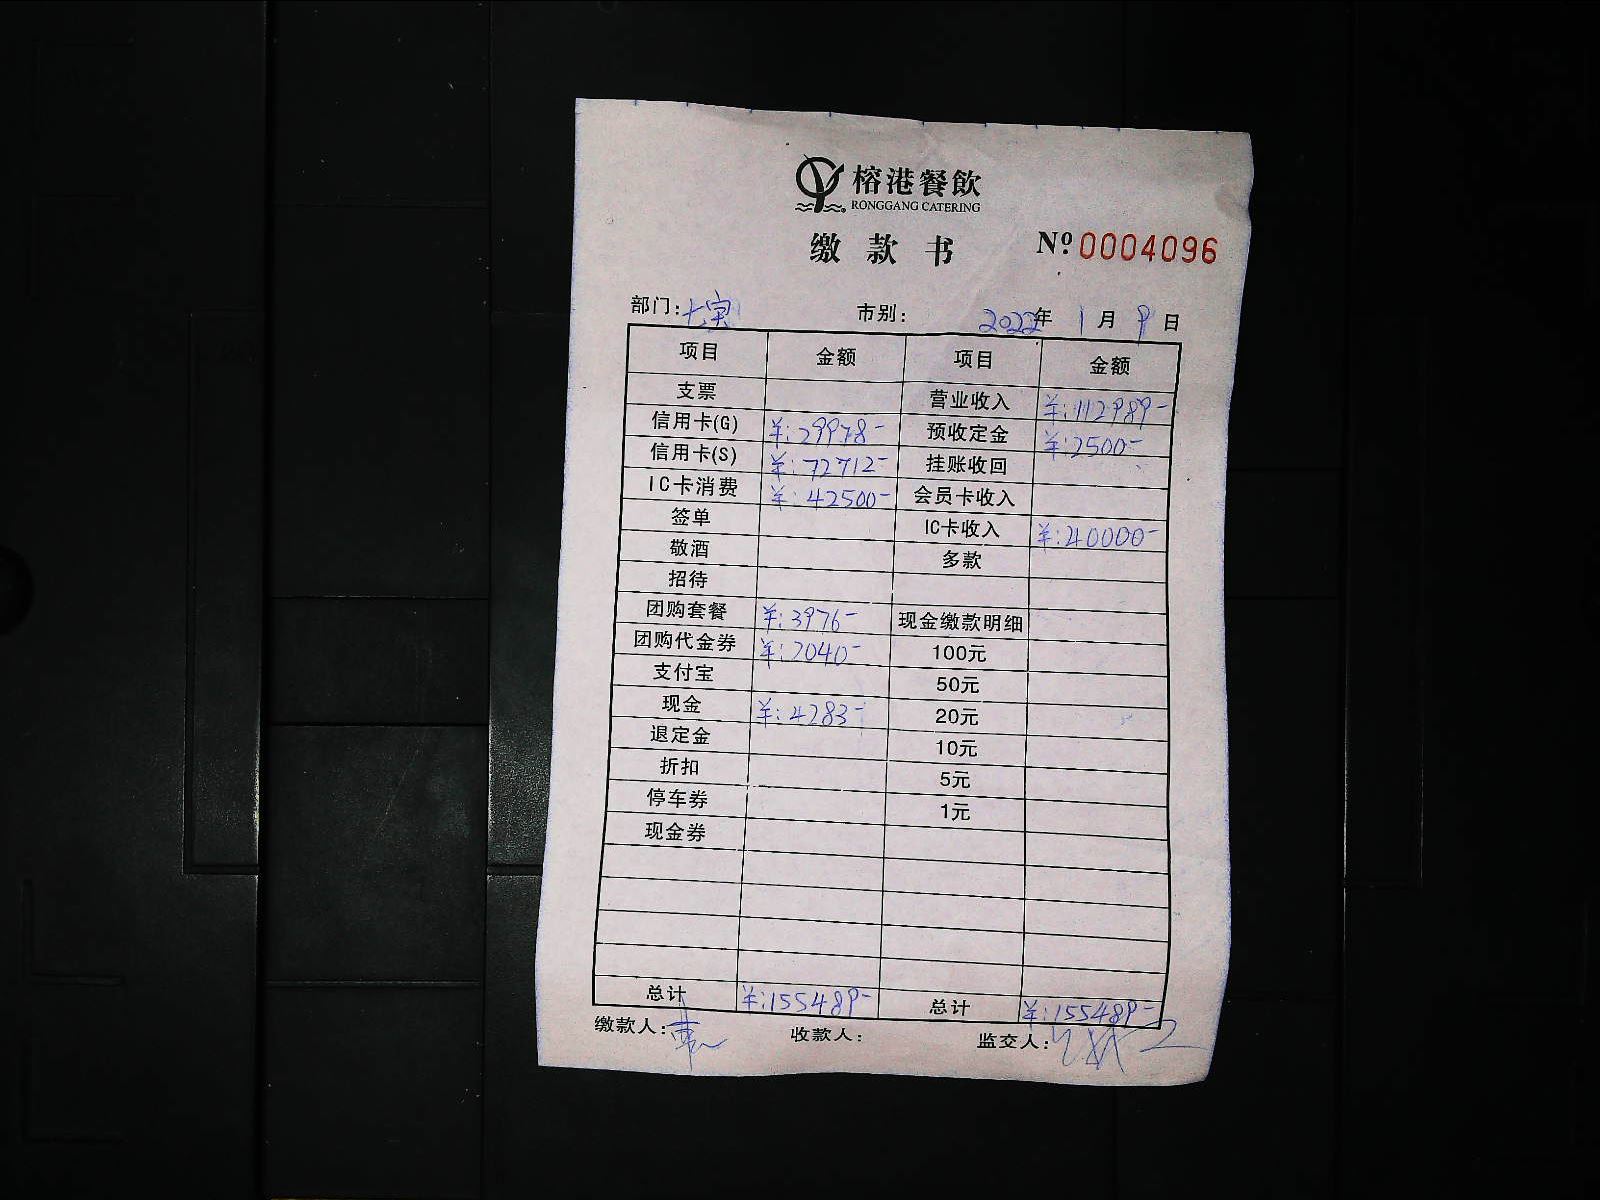 榕港餐飲
RONGGANG CATERING
缴款书 №0004096
部门: 市别: 2022年 1月 9日
项目 金额 项目 金额
支票 营业收入 ¥:112989-
信用卡(G) ¥:29978- 预收定金 ¥:2500-
信用卡(S) ¥:72712- 挂账收回
IC卡消费 ¥:42500- 会员卡收入
签单 IC卡收入 ¥:40000-
敬酒 多款
招待
团购套餐 ¥:3976- 现金缴款明细
团购代金券 ¥:2040- 100元
支付宝 50元
现金 ¥:4283- 20元
退定金 10元
折扣 5元
停车券 1元
现金券
总计 ¥:155489- 总计 ¥:155489-
缴款人: 收款人: 监交人: